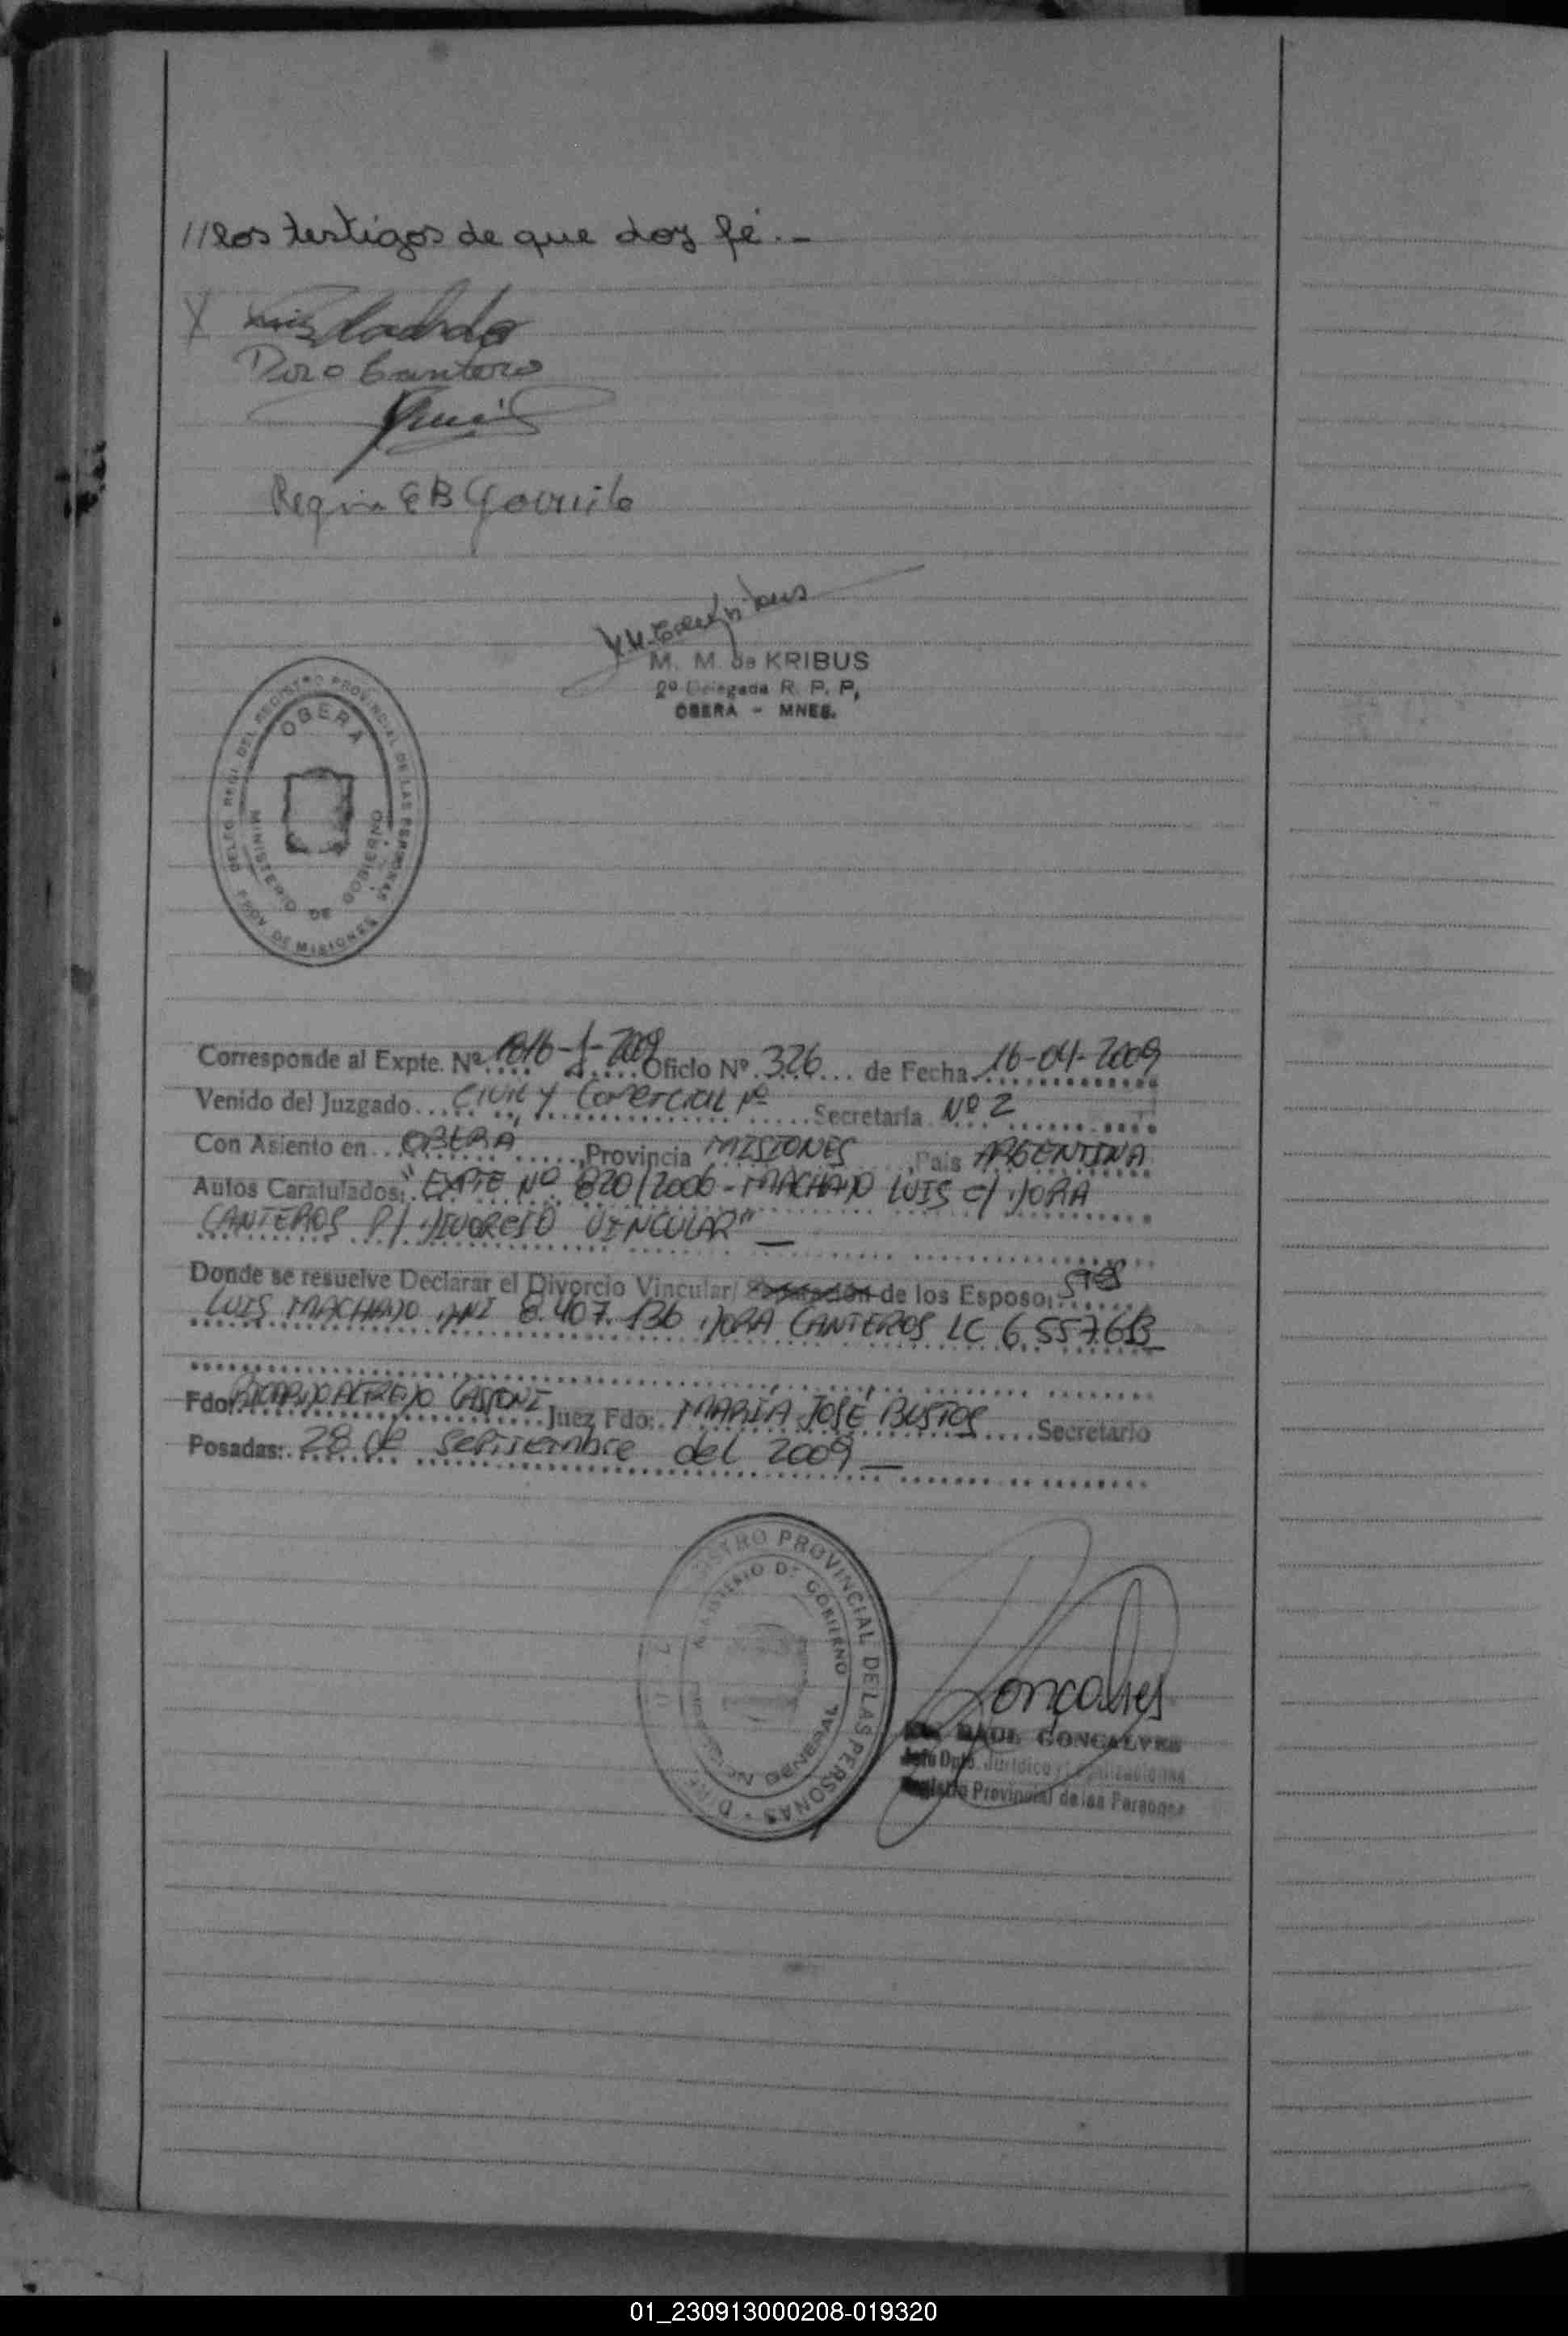 //los testigos de que doy fé.-
X Luis Machado
Dora Cantero
Regina E B
M. M. de KRIBUS
2º Delegada R. P. P.
OBERA - MNES.
DELEG. REGI. DEL REGISTRO PROVINCIAL DE LAS PERSONAS
OBERA
MINISTERIO DE GOBIERNO
PROV. DE MISIONES
Corresponde al Expte. Nº 1816-J-2009 Oficio Nº 326 de Fecha 16-04-2009
Venido del Juzgado CIVIL Y COMERCIAL Nº Secretaría Nº 2
Con Asiento en OBERA, Provincia MISIONES, País ARGENTINA
Autos Caratulados: "EXPTE Nº 820/2006 - MACHADO LUIS C/ DORA
CANTEROS P/ DIVORCIO VINCULAR"
Donde se resuelve Declarar el Divorcio Vincular/ Separación de los Esposos: STES
LUIS MACHADO DNI 8.407.136 DORA CANTEROS LC 6.557.613
Fdo: RICARDO ALFREDO CASSONI Juez Fdo: MARIA JOSÉ BUSTOS Secretario
Posadas: 28 de septiembre del 2009
REGISTRO PROVINCIAL DE LAS PERSONAS
MINISTERIO DE GOBIERNO
DIRECCION GENERAL
Gonçalves
RAUL GONCALVES
Jefe Dpto. Jurídico y Legalizaciones
Registro Provincial de las Personas
01_230913000208-019320